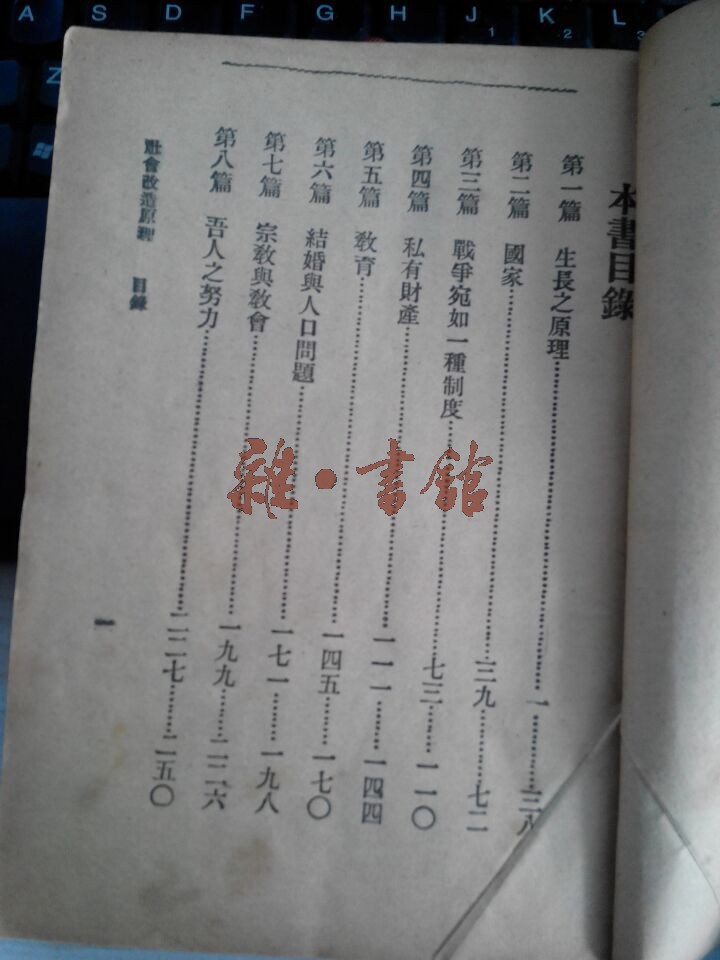 A S D F G H J K L
1 2 3
Z
本書目錄
第一篇 生長之原理…………一………三八
第二篇 國家…………三九………七二
第三篇 戰爭宛如一種制度…………七三………一一〇
第四篇 私有財產…………一一一………一四四
第五篇 敎育…………一四五………一七〇
第六篇 結婚與人口問題…………一七一………一九八
第七篇 宗敎與敎會…………一九九………二二六
第八篇 吾人之努力…………二二七………二五〇
社會改造原理 目錄
一
雜·書館